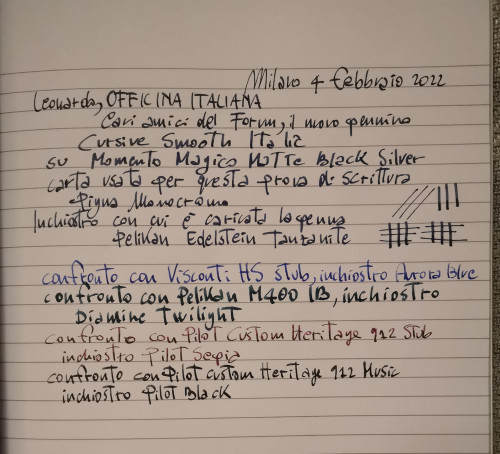 Milano 4 febbraio 2022
Leonardo, OFFICINA ITALIANA
Cari amici del Forum, il nuovo pennino
Cursive Smooth Italic
su Momento Magico MATTE Black Silver
carta usata per questa prova di scrittura
Pigna Monocromo
Inchiostro con cui è caricata la penna
Pelikan Edelstein Tanzanite
confronto con Visconti HS stub, inchiostro Aurora Blue
confronto con Pelikan M400 IB, inchiostro
Diamine Twilight
confronto con Pilot Custom Heritage 912 Stub
inchiostro Pilot Sepia
confronto con Pilot Custom Heritage 912 Music
inchiostro Pilot Black